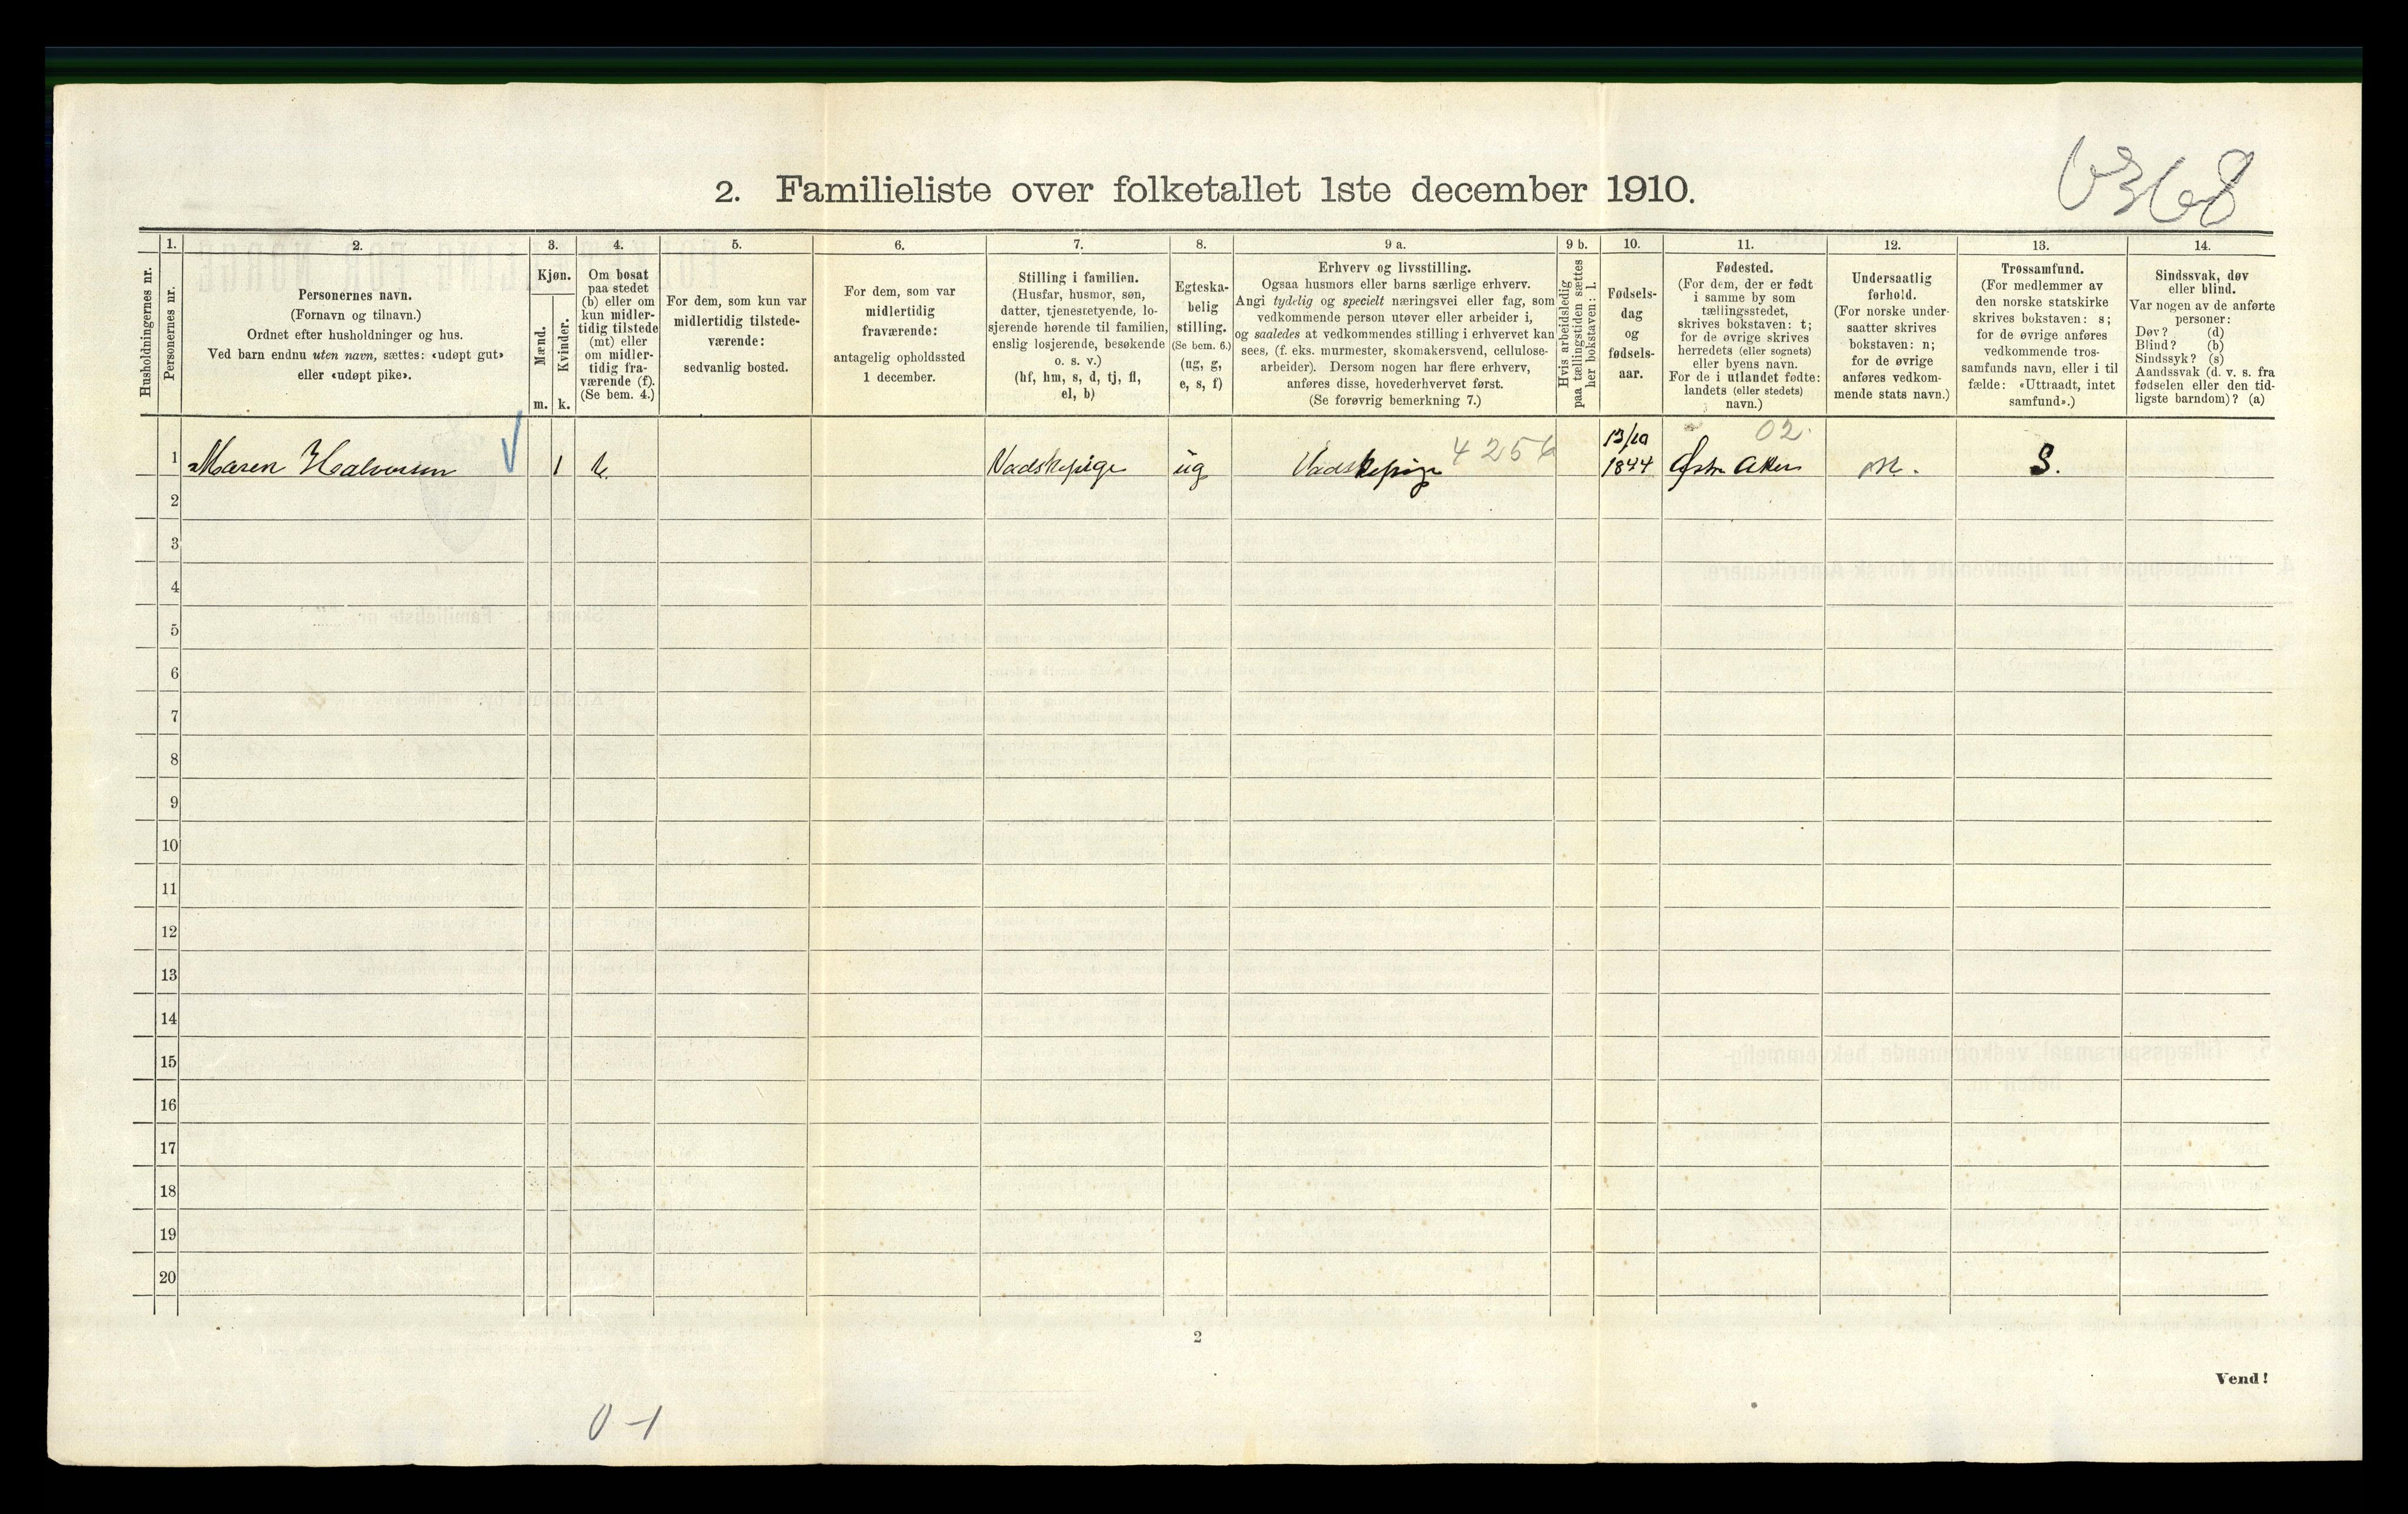 6368
2. Familieliste over folketallet 1ste december 1910.
1. 2. 3. 4. 5. 6. 7. 8. 9 a. 9 b. 10. 11. 12. 13. 14.
Husholdningernes nr.
Personernes nr.
Personernes navn.
(Fornavn og tilnavn.)
Ordnet efter husholdninger og hus.
Ved barn endnu uten navn, sættes: «udøpt gut»
eller «udøpt pike».
Kjøn.
Mænd.
Kvinder.
m. k.
Om bosat
paa stedet
(b) eller om
kun midler-
tidig tilstede
(mt) eller
om midler-
tidig fra-
værende (f).
(Se bem. 4.)
For dem, som kun var
midlertidig tilstede-
værende:
sedvanlig bosted.
For dem, som var
midlertidig
fraværende:
antagelig opholdssted
1 december.
Stilling i familien.
(Husfar, husmor, søn,
datter, tjenestetyende, lo-
sjerende hørende til familien,
enslig losjerende, besøkende
o. s. v.)
(hf, hm, s, d, tj, fl,
el, b)
Egteska-
belig
stilling.
(Se bem. 6.)
(ug, g,
e, s, f)
Erhverv og livsstilling.
Ogsaa husmors eller barns særlige erhverv.
Angi tydelig og specielt næringsvei eller fag, som
vedkommende person utøver eller arbeider i,
og saaledes at vedkommendes stilling i erhvervet kan
sees, (f. eks. murmester, skomakersvend, cellulose-
arbeider). Dersom nogen har flere erhverv,
anføres disse, hovederhvervet først.
(Se forøvrig bemerkning 7.)
Hvis arbeidsledig
paa tællingstiden sættes
her bokstaven: l.
Fødsels-
dag
og
fødsels-
aar.
Fødested.
(For dem, der er født
i samme by som
tællingsstedet,
skrives bokstaven: t;
for de øvrige skrives
herredets (eller sognets)
eller byens navn.
For de i utlandet fødte:
landets (eller stedets)
navn.)
Undersaatlig
forhold.
(For norske under-
saatter skrives
bokstaven: n;
for de øvrige
anføres vedkom-
mende stats navn.)
Trossamfund.
(For medlemmer av
den norske statskirke
skrives bokstaven: s;
for de øvrige anføres
vedkommende tros-
samfunds navn, eller i til
fælde: «Uttraadt, intet
samfund».)
Sindssvak, døv
eller blind.
Var nogen av de anførte
personer:
Døv? (d)
Blind? (b)
Sindssyk? (s)
Aandssvak (d. v. s. fra
fødselen eller den tid-
ligste barndom)? (a)
1 Maren Halvorsen 1 Vadskepige ug Vadskepige 4256 13/10 1844 02. Østr. Aker n. S.
2
3
4
5
6
7
8
9
10
11
12
13
14
15
16
17
18
19
20
2
Vend!
0-1